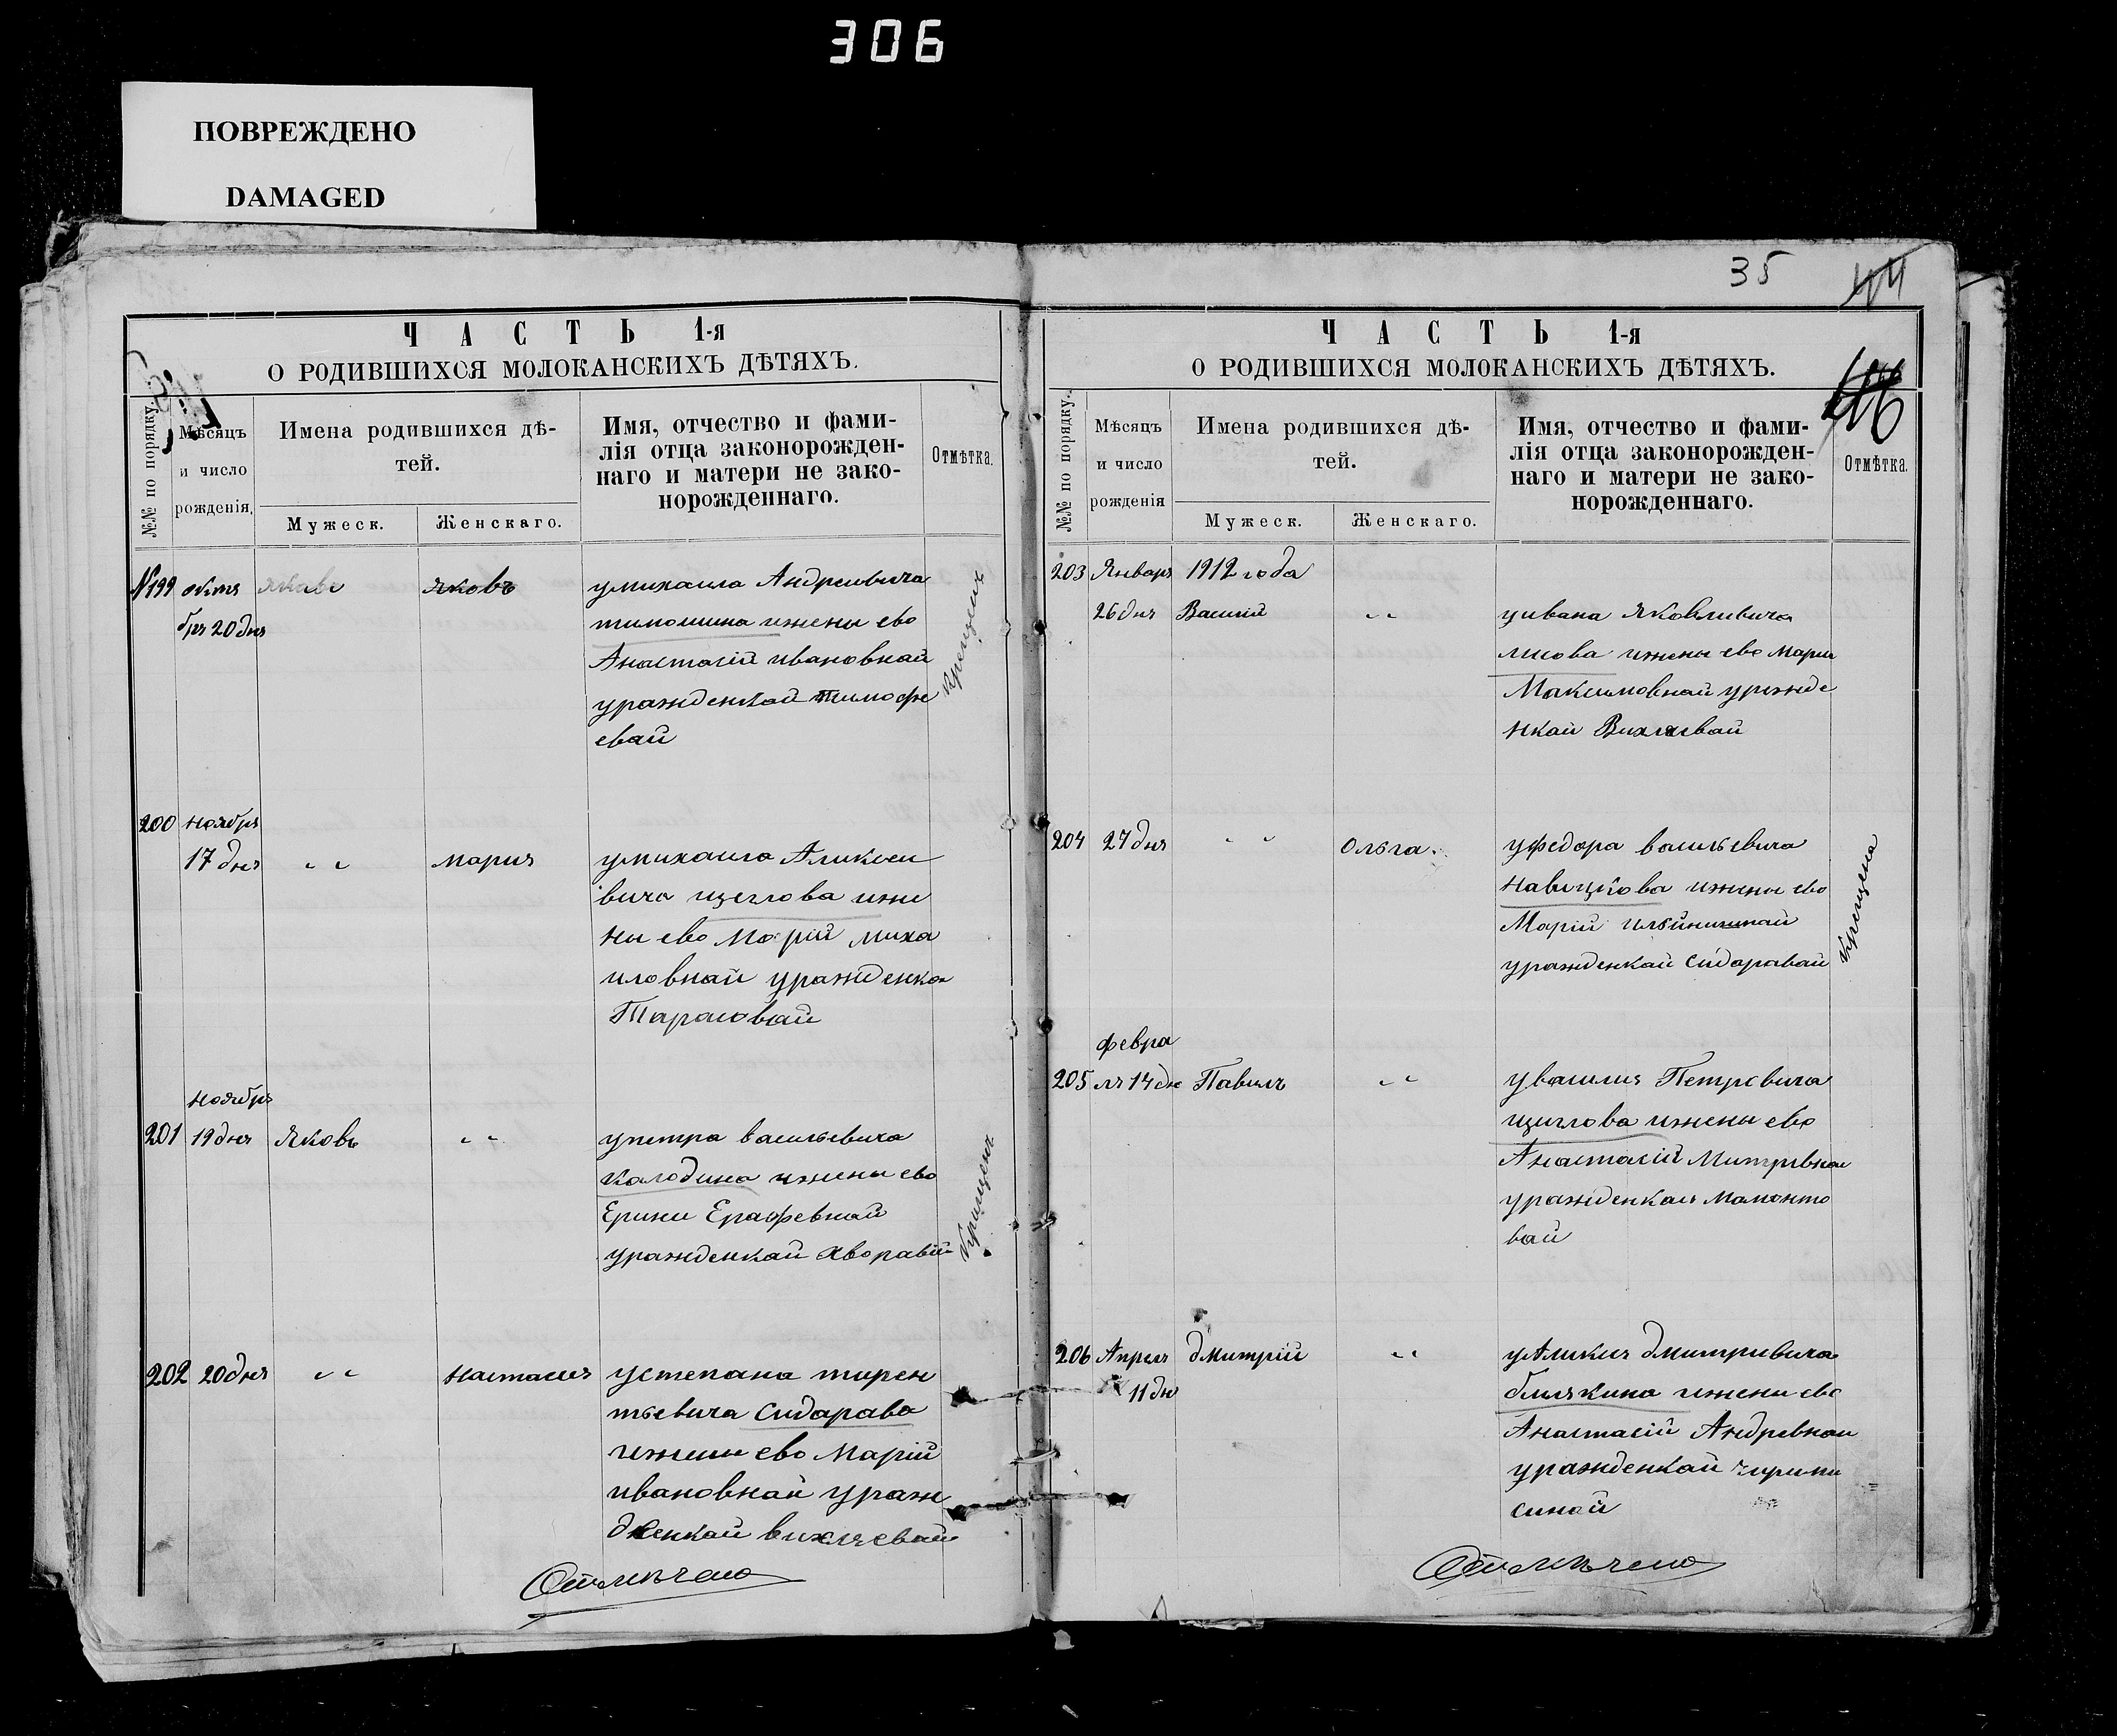 306
ПОВРЕЖДЕНО
DAMAGED
ЧАСТЬ 1-я
О РОДИВШИХСЯ МОЛОКАНСКИХЪ ДѢТЯХЪ.
№№ по порядку.
Мѣсяцъ
и число
рожденія.
Имена родившихся дѣ-
тей.
Мужеск.
Женскаго.
Имя, отчество и фами-
лія отца законорожден-
наго и матери не зако-
норожденнаго.
Отмѣтка.
№199 октя
бря 20 дня
Яковъ
умихаила Андреивича
тимошина ижены ево
Анастасіи ивановнай
уражденкай тимофе
евай
200 ноября
17 дня
" "
мария
умихаила Аликсеи
вича щеглова ижи
ны ево Маріи миха
иловнай уражденкаи
Тарасовай
ноября
201 19 дня Яковъ " "
упетра васильевича
калодина ижены ево
Ерины Ерафевнай
уражденкай хворавай
Крещены
202 20 дня " " настасия
устепана тирен
тьевича сидарава
ижены ево Маріи
ивановнай ураж
денкай вихляевай
Отмѣчено
35
ЧАСТЬ 1-я
О РОДИВШИХСЯ МОЛОКАНСКИХЪ ДѢТЯХЪ.
№№ по порядку.
Мѣсяцъ
и число
рожденія
Имена родившихся дѣ-
тей.
Мужеск.
Женскаго.
Имя, отчество и фами-
лія отца законорожден-
наго и матери не зако-
норожденнаго.
Отмѣтка.
203 Января 1912 года
26 дня Василий " "
уивана Яковливича
лисова ижены ево Марии
Максимовнай уражде
нкай Вихляевай
204 27 дня " " Ольга.
уфедора васильевича
навицкова ижены ево
Маріи ильинишнай
уражденкай сидаравай
Крещена
февра
205 ля 14 дн Павилъ " "
увасилия Петровича
щиглова ижены ево
Анастасіи Митревнаи
уражденкаи мамонто
вай
206 Апреля дмитрій " "
11 дн
уАликия дмитривича
блияхина ижены ево
Анастасіи Андревнаи
уражденкай чирими
синай
Отмѣчено